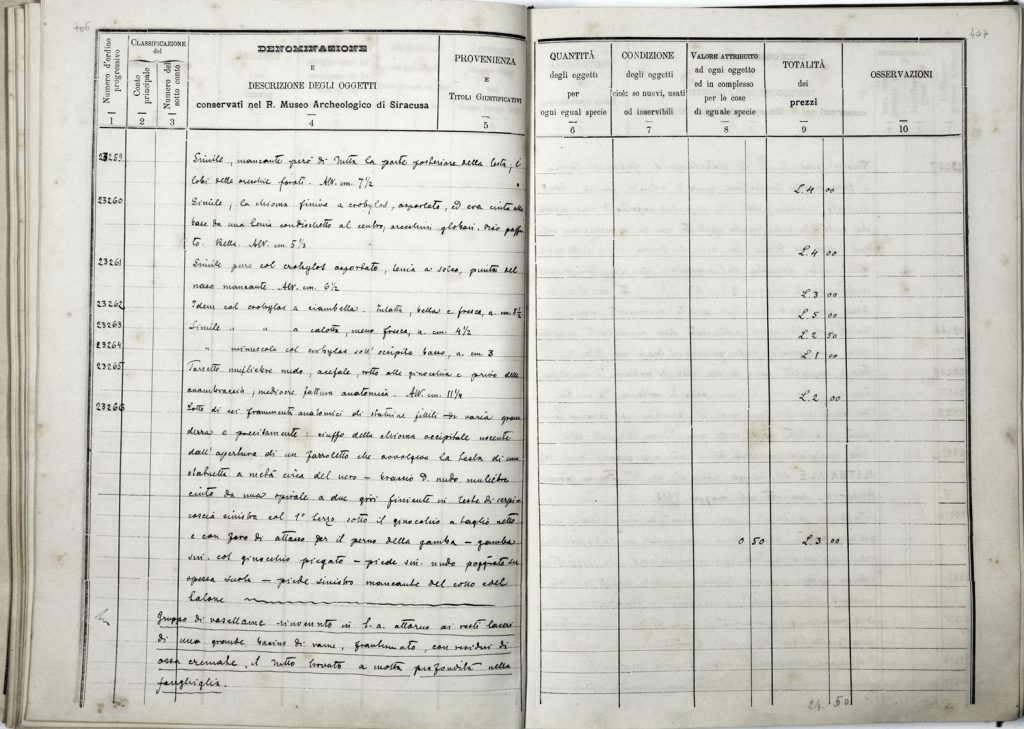 406
Numero d'ordine progressivo
CLASSIFICAZIONE del
Conto principale
Numero del sotto conto
DENOMINAZIONE
E
DESCRIZIONE DEGLI OGGETTI
conservati nel R. Museo Archeologico di Siracusa
PROVENIENZA
E
TITOLI GIUSTIFICATIVI
1 2 3 4 5
23259 Simile, mancante però di tutta la parte posteriore della testa, i
lobi delle orecchie forati. Alt. cm. 7 1/2
23260 Simile, la chioma finiva a crobylos, asportato, ed era cinta alla
base da una tenia con dischetto al centro, orecchini globari. Viso paffu
to. Bella. Alt. cm 5 1/2
23261 Simile pure col crobylos asportato, tenia a solco, punta del
naso mancante. Alt. cm. 6 1/2
23262 Idem col crobylos a ciambella. bella e fresca, a. cm.
23263 Simile " " a calotta, meno fresca, a. cm. 4 1/2
23264 " minuscola col crobylos sull'occipite basso, a. cm. 3
23265 Torsetto muliebre nudo, acefalo, rotto alle ginocchia e privo delle
avambraccia, mediocre fattura anatomica. Alt. cm. 11 1/4
23266 Lotto di sei frammenti anatomici di statuine fittili di varia gran
dezza e precisamente: ciuffo della chioma occipitale uscente
dall'apertura di un fazzoletto che avvolgeva la testa di una
statuetta a metà circa del vero - braccio d. nudo muliebre
cinto da una spirale a due giri finiente in teste di serpi -
coscia sinistra col 1° terzo sotto il ginocchio a taglio netto
e con foro di attacco per il perno della gamba - gamba
sin. col ginocchio piegato - piede sin. nudo poggiato su
spessa suola - piede sinistro mancante del collo e del
talone
Gruppo di vasellame rinvenuto in S. a. attorno ai resti laceri
di una grande bacino di rame, frantumato, con residui di
ossa cremate, il tutto trovato a molta profondità nella
fanghiglia.
407
QUANTITÀ
degli oggetti
per
ogni egual specie
CONDIZIONE
degli oggetti
cioè: se nuovi, usati
od inservibili
VALORE ATTRIBUITO
ad ogni oggetto
ed in complesso
per le cose
di eguale specie
TOTALITÀ
dei
prezzi
OSSERVAZIONI
6 7 8 9 10
L. 4 00
L. 4 00
L. 3 00
L. 5 00
L. 2 50
L. 1 00
L. 2 00
0 50 L. 3 00
24. 50